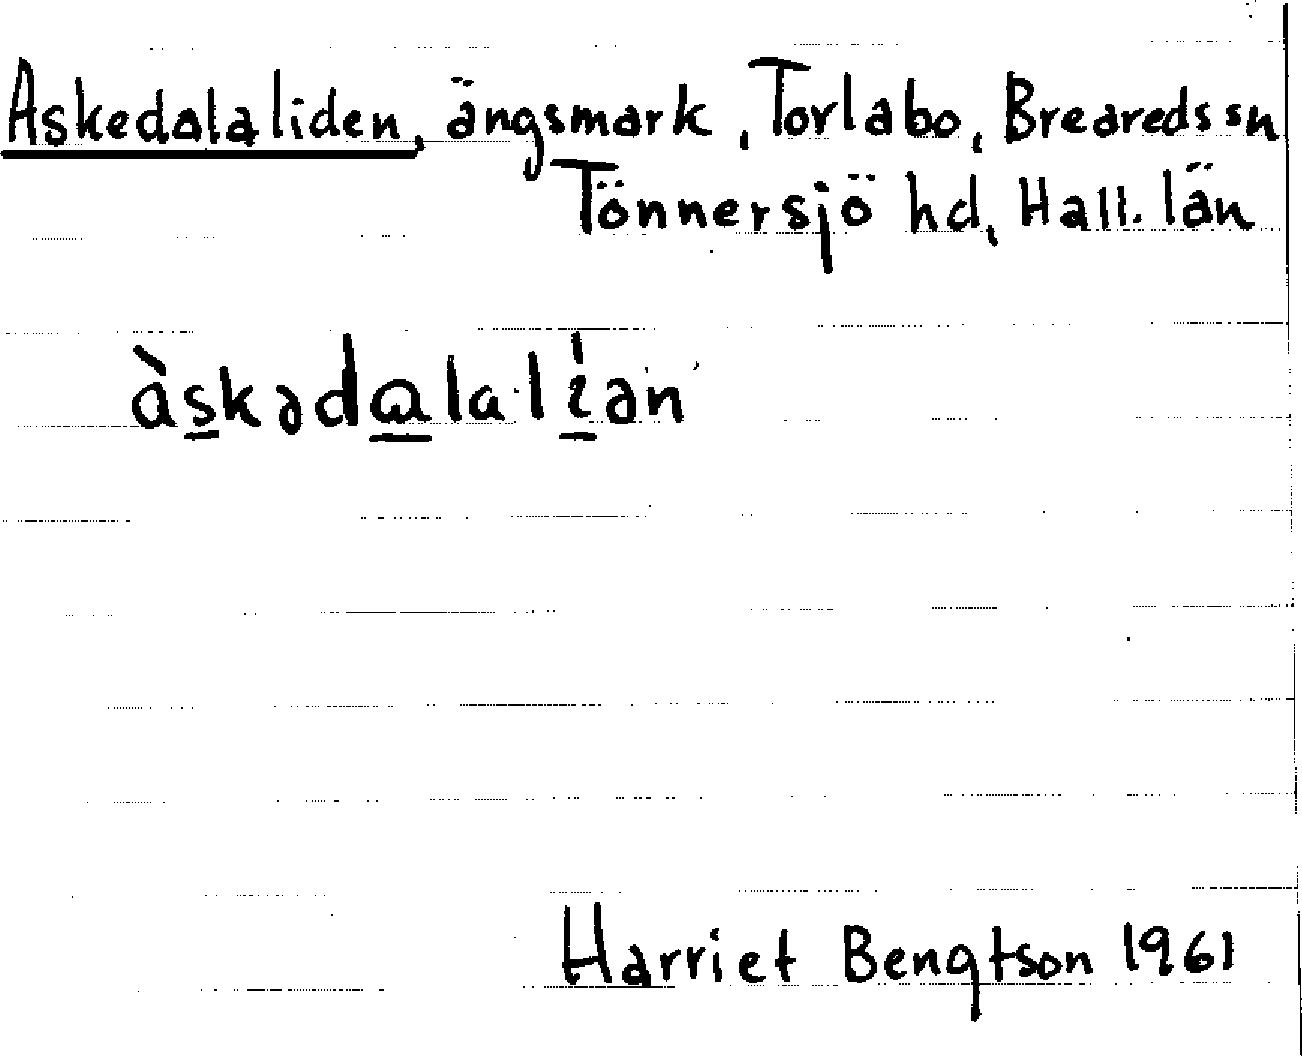 Askedalaliden, ängsmark, Torlabo, Breareds sn
Tönnersjö hd, Hall. län
àskədɑlalíən
Harriet Bengtson 1961